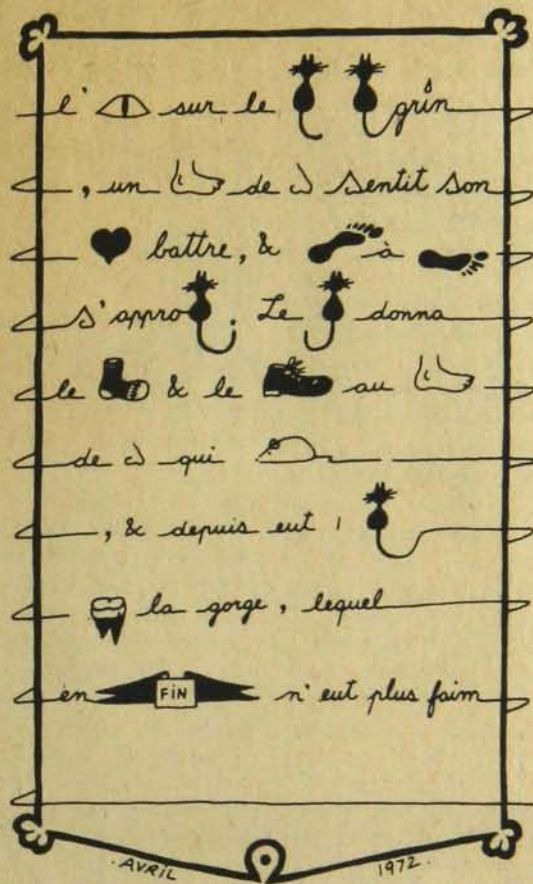 l' sur le grin
, un de sentit son
battre, & à
s'appro . Le donna
le & le au
de qui
, & depuis eut 1
la gorge, lequel
en FiN n'eut plus faim
AVRIL 1972